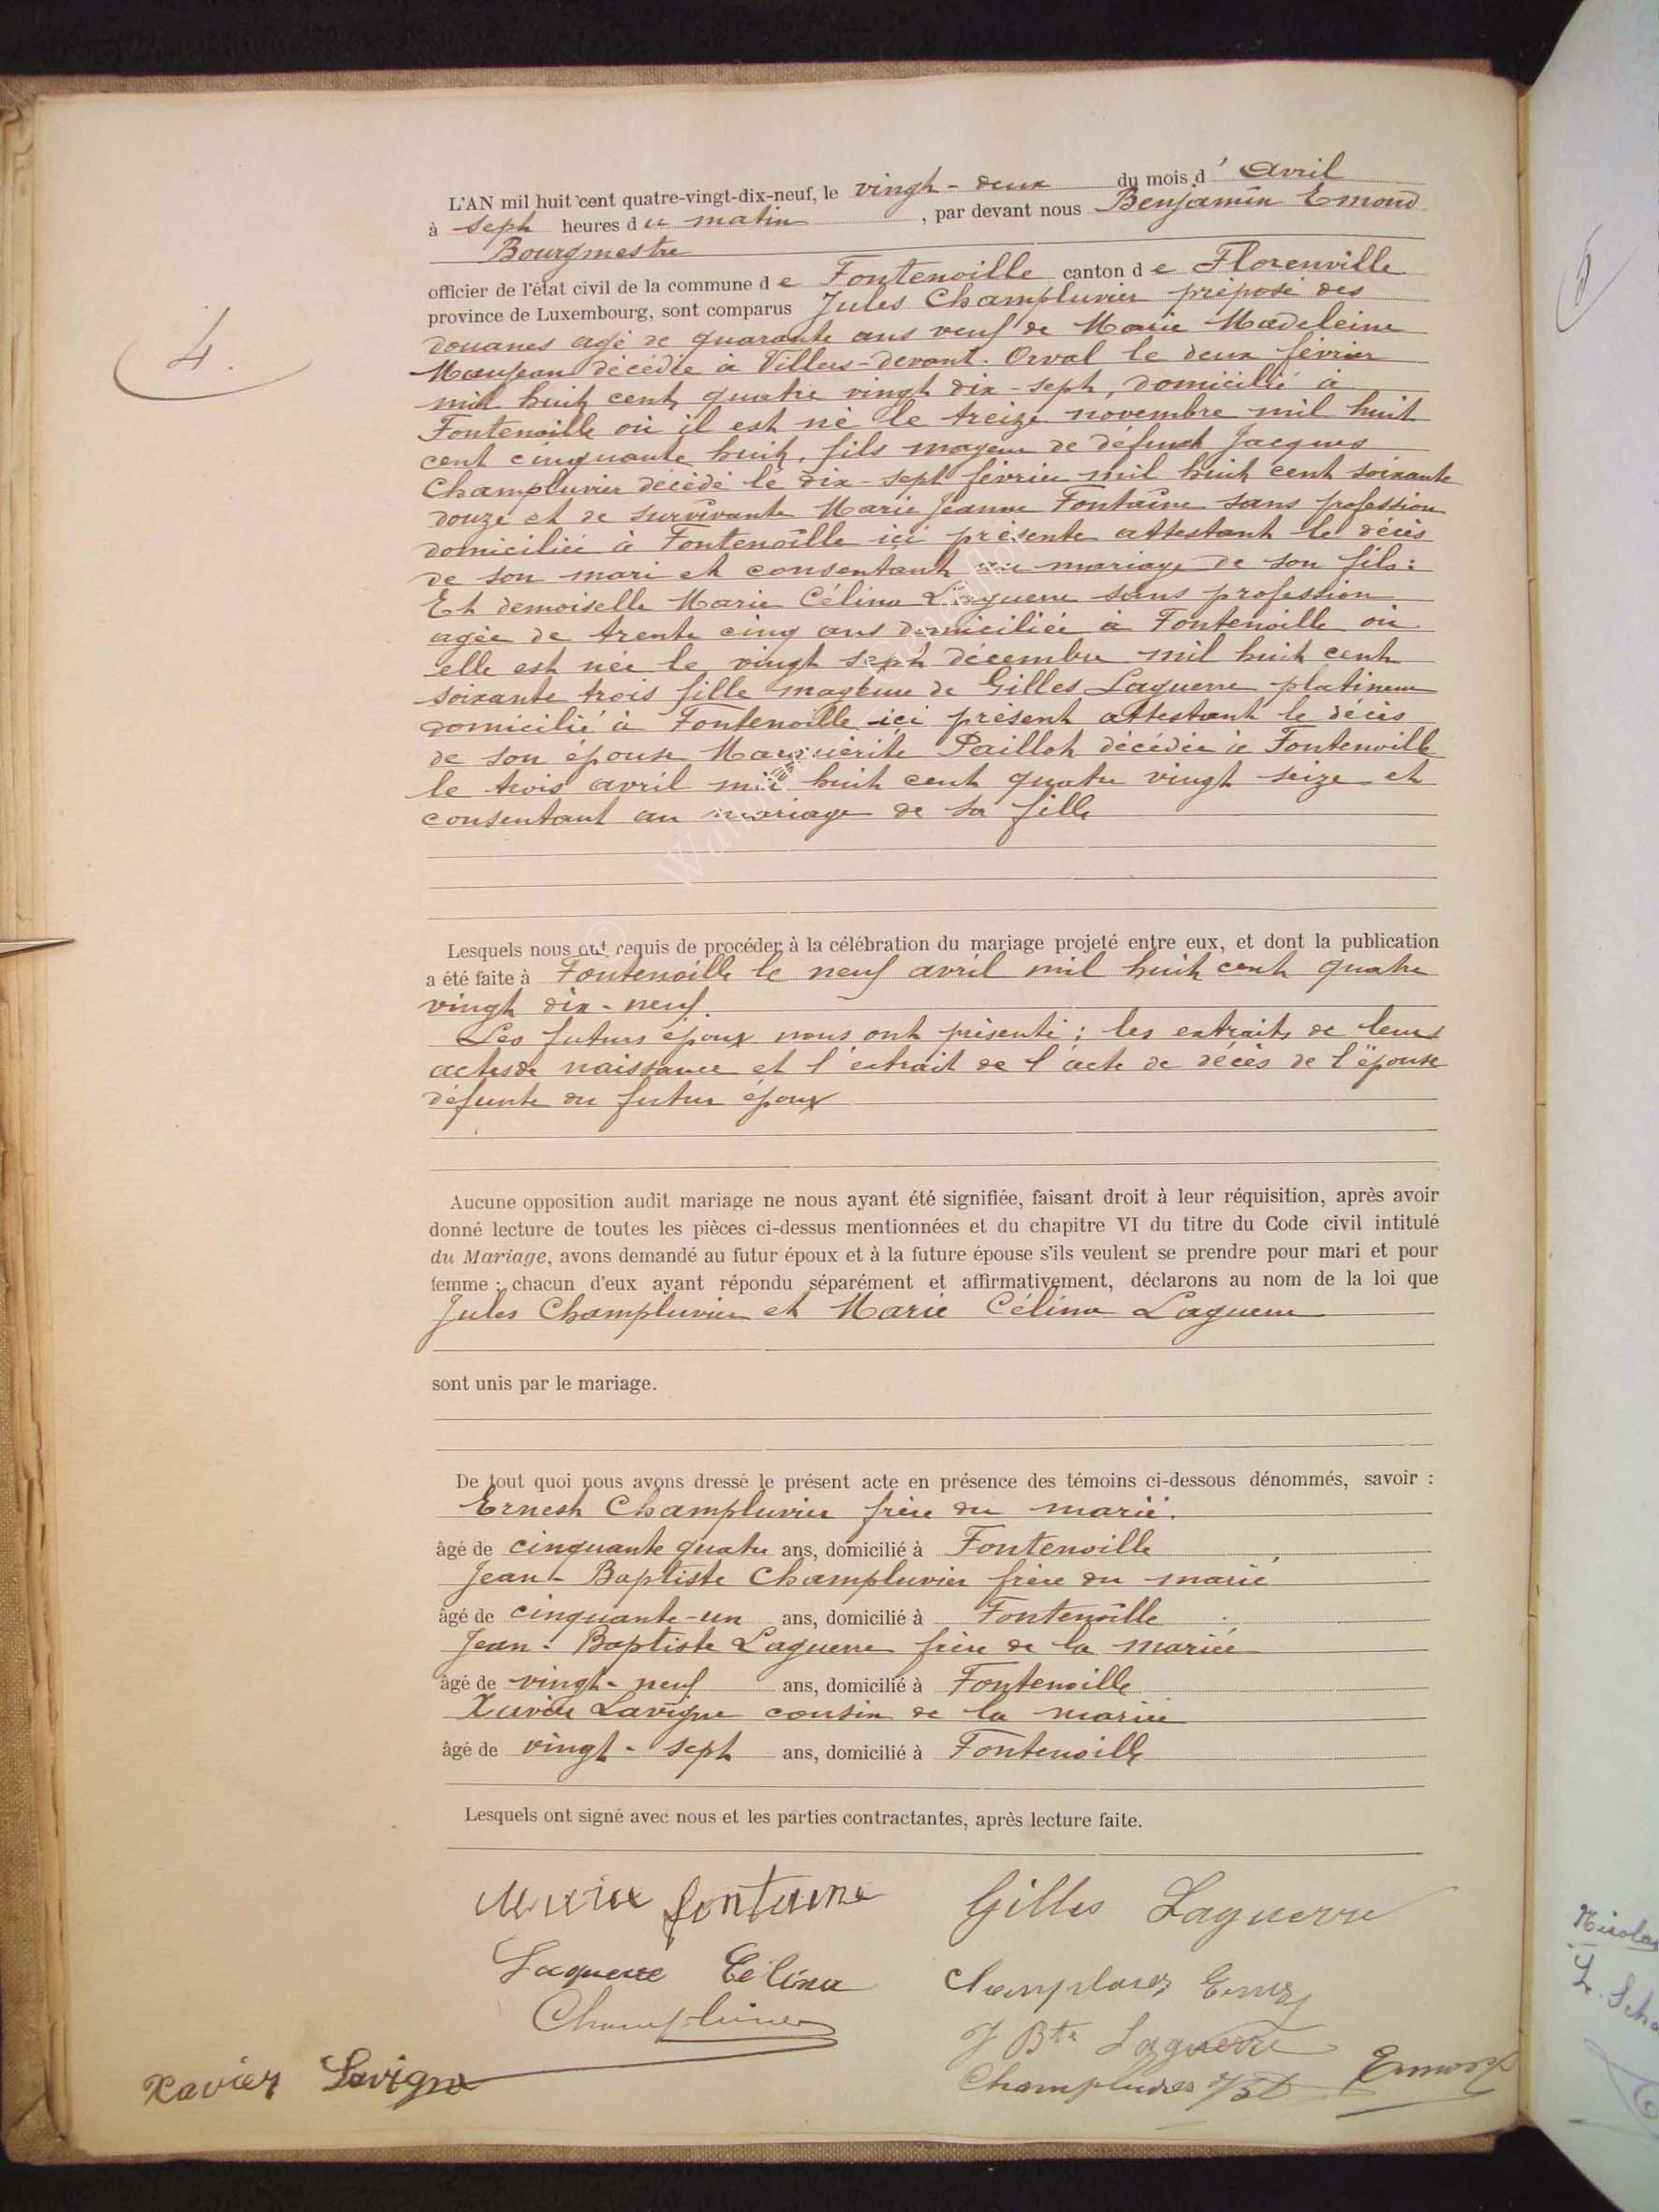 L'AN mil huit cent quatre-vingt-dix-neuf, le vingt-deux du mois d'Avril
à sept heures du matin, par devant nous Benjamin Emond
Bourgmestre
officier de l'état civil de la commune de Fontenoille canton de Florenville
province de Luxembourg, sont comparus Jules Champluvier préposé des
douanes agé de quarante ans veuf de Marie Madeleine
Maujean décédée à Villers-devant-Orval le deux février
mil huit cent quatre vingt dix-sept, domicilié à
Fontenoille où il est né le treize novembre mil huit
cent cinquante huit, fils majeur de défunt Jacques
Champluvier décédé le dix-sept février mil huit cent soixante
douze et de survivante Marie Jeanne Fontaine sans profession
domiciliée à Fontenoille ici présente attestant le décès
de son mari et consentant au mariage de son fils :
Et demoiselle Marie Célina Laguerre sans profession
agée de trente cinq ans domiciliée à Fontenoille où
elle est née le vingt sept décembre mil huit cent
soixante trois fille majeure de Gilles Laguerre platineur
domicilié à Fontenoille ici présent attestant le décès
de son épouse Marguérite Paillot décédée à Fontenoille
le trois avril mil huit cent quatre vingt seize et
consentant au mariage de sa fille
4.
Lesquels nous ont requis de procéder à la célébration du mariage projeté entre eux, et dont la publication
a été faite à Fontenoille le neuf avril mil huit cent quatre
vingt dix-neuf.
Les futurs époux nous ont présenté : les extraits de leurs
actes de naissance et l'extrait de l'acte de décès de l'épouse
défunte du futur époux
Aucune opposition audit mariage ne nous ayant été signifiée, faisant droit à leur réquisition, après avoir
donné lecture de toutes les pièces ci-dessus mentionnées et du chapitre VI du titre du Code civil intitulé
du Mariage, avons demandé au futur époux et à la future épouse s'ils veulent se prendre pour mari et pour
femme ; chacun d'eux ayant répondu séparément et affirmativement, déclarons au nom de la loi que
Jules Champluvier et Marie Célina Laguerre
sont unis par le mariage.
De tout quoi nous avons dressé le présent acte en présence des témoins ci-dessous dénommés, savoir :
Ernest Champluvier frère du marié.
âgé de cinquante quatre ans, domicilié à Fontenoille
Jean-Baptiste Champluvier frère du marié
âgé de cinquante-un ans, domicilié à Fontenoille
Jean-Baptiste Laguerre frère de la mariée
âgé de vingt-neuf ans, domicilié à Fontenoille
Xavier Lavigne cousin de la mariée
âgé de vingt-sept ans, domicilié à Fontenoille
Lesquels ont signé avec nous et les parties contractantes, après lecture faite.
Marie fontaine Gilles Laguerre
Laguerre Célina
Champluvier
J Bte Laguerre
Xavier Lavigne
Champluvier JBt Emond